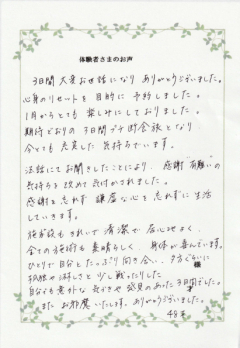 体験者さまのお声
3日間 大変お世話になり ありがとうございました。
心身のリセットを 目的に 予約しました。
1月からとても 楽しみにしておりました。
期待どおりの 3日間プチ断食旅となり
今とても 充実した 気持ちでいます。
法話にてお聞きしたことにより、感謝
気持ちを 改めて 気付かされました。
感謝を忘れず 謙虚な心を 忘れずに 生活
していきます。
施設もきれいで 清潔で 居心地よく、
全ての施術も 素晴らしく、身体が喜んでいます。
ひとりで自分と たっぷり向き合い、夕方ぐらいに
孤独や淋しさと 少し戦ったりした
自分にも意外な 長さや発見のあった 3日間でした。
また お邪魔 いたします。ありがとうございました。